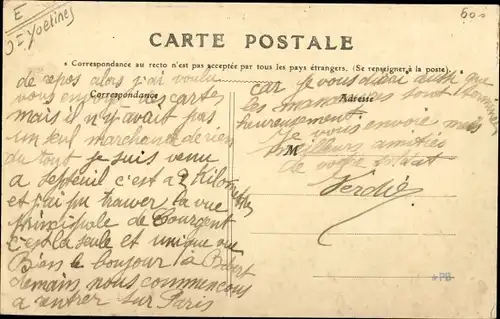 E
J = Yvelines
600
CARTE POSTALE
* Correspondance au recto n'est pas acceptée par tous les pays étrangers. (Se renseigner à la poste)
Correspondance
Adresse
M
de repos alors j'ai voulu
vous envoyer des cartes
mais il n'y avait pas
un seul marchand de rien
du tout je suis venu
a Septeuil c'est a 2 Kilometres
et j'ai pu trouver la vue
principale de
c'est la seule et unique vue
Bien le bonjour à
demain nous commencons
a rentrer sur Paris
car je vous dirai aussi que
les manœuvres sont
heureusement
Je vous envoie mes
meilleurs amitiés
de votre
Verdié
PB